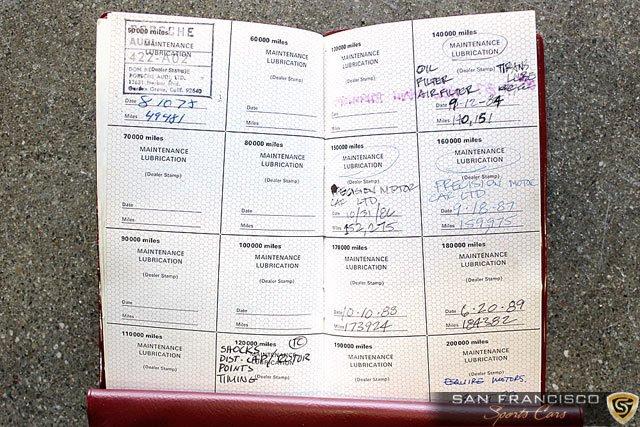 50000 miles
PORSCHE
AUDI
MAINTENANCE
LUBRICATION
422-A04
(Dealer Stamp)
PORSCHE AUDI, LTD.
Garden Grove, Calif. 92640
Date 8.10.78
Miles 49981
60000 miles
MAINTENANCE
LUBRICATION
(Dealer Stamp)
Date
Miles
70000 miles
MAINTENANCE
LUBRICATION
(Dealer Stamp)
Date
Miles
80000 miles
MAINTENANCE
LUBRICATION
(Dealer Stamp)
Date
Miles
90000 miles
MAINTENANCE
LUBRICATION
(Dealer Stamp)
Date
Miles
100000 miles
MAINTENANCE
LUBRICATION
(Dealer Stamp)
Date
Miles
110000 miles
MAINTENANCE
LUBRICATION
(Dealer Stamp)
120000 miles
TC
SHOCKS
DIST. CAP/ROTOR
POINTS
TIMING
130000 miles
MAINTENANCE
LUBRICATION
(Dealer Stamp)
Date
Miles
140000 miles
MAINTENANCE
LUBRICATION
OIL
FILTER
AIR FILTER
TRANS
LUBE
Date 9-12-84
Miles 140,151
150000 miles
MAINTENANCE
LUBRICATION
(Dealer Stamp)
PRECISION MOTOR
CAR LTD.
Date 10/31/86
Miles 152,275
160000 miles
MAINTENANCE
LUBRICATION
(Dealer Stamp)
PRECISION MOTOR
CAR LTD
Date 9-18-87
Miles 159975
170000 miles
MAINTENANCE
LUBRICATION
(Dealer Stamp)
Date 10-10-88
Miles 173924
180000 miles
MAINTENANCE
LUBRICATION
(Dealer Stamp)
Date 6-20-89
Miles 184382
190000 miles
MAINTENANCE
LUBRICATION
(Dealer Stamp)
200000 miles
MAINTENANCE
LUBRICATION
(Dealer Stamp)
ESQUIRE MOTORS.
SAN FRANCISCO
Sports Cars